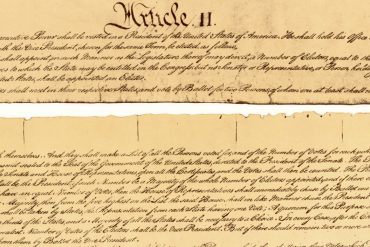 Article. II.
ecutive Power shall be vested in a President of the United States of America. He shall hold his Office
with the Vice President, chosen for the same Term, be elected, as follows
shall appoint, in such Manner as the Legislature thereof may direct, a Number of Electors, equal to the
to which the State may be entitled in the Congress: but no Senator or Representative, or Person holding
ted States, shall be appointed an Elector.
ors shall meet in their respective States, and vote by Ballot for two Persons, of whom one at least shall not
themselves. And they shall make a List of all the Persons voted for, and of the Number of Votes for each; which
sealed to the Seat of the Government of the United States, directed to the President of the Senate. The
Senate and House of Representatives, open all the Certificates, and the Votes shall then be counted. The
all be the President, if such Number be a Majority of the whole Number of Electors appointed; and if there
have an equal Number of Votes, then the House of Representatives shall immediately chuse by Ballot one
Majority, then from the five highest on the List the said House shall in like Manner chuse the President. But
be taken by States, the Representation from each State having one Vote; A quorum for this Purpose
of the States, and a Majority of all the States shall be necessary to a Choice. In every Case, after the
Number of Votes of the Electors shall be the Vice President. But if there should remain two or more
from them by Ballot the Vice President.